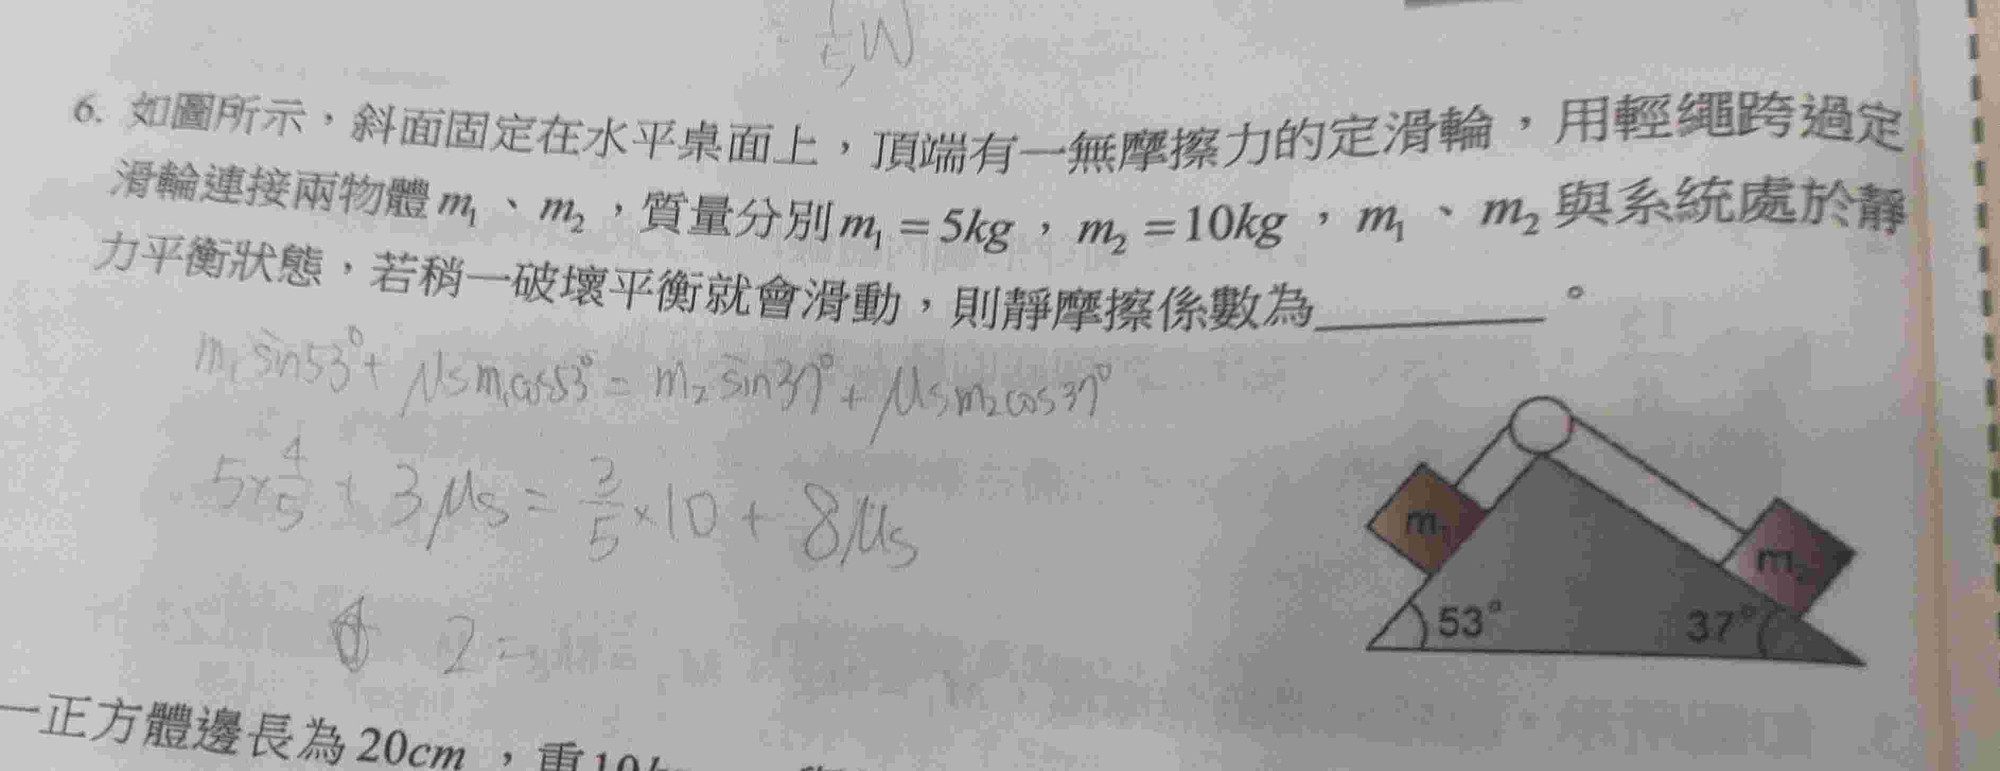 1/5 W
6. 如圖所示，斜面固定在水平桌面上，頂端有一無摩擦力的定滑輪，用輕繩跨過定
滑輪連接兩物體 m₁、m₂，質量分別 m₁ = 5kg，m₂ = 10kg，m₁、m₂ 與系統處於靜
力平衡狀態，若稍一破壞平衡就會滑動，則靜摩擦係數為＿＿＿＿＿。
m₁ sin53° + μs m₁cos53° = m₂ sin37° + μs m₂ cos37°
5×4/5 + 3μs = 3/5×10 + 8μs
2 =
m₁
m₂
53°
37°
一正方體邊長為 20cm，重10